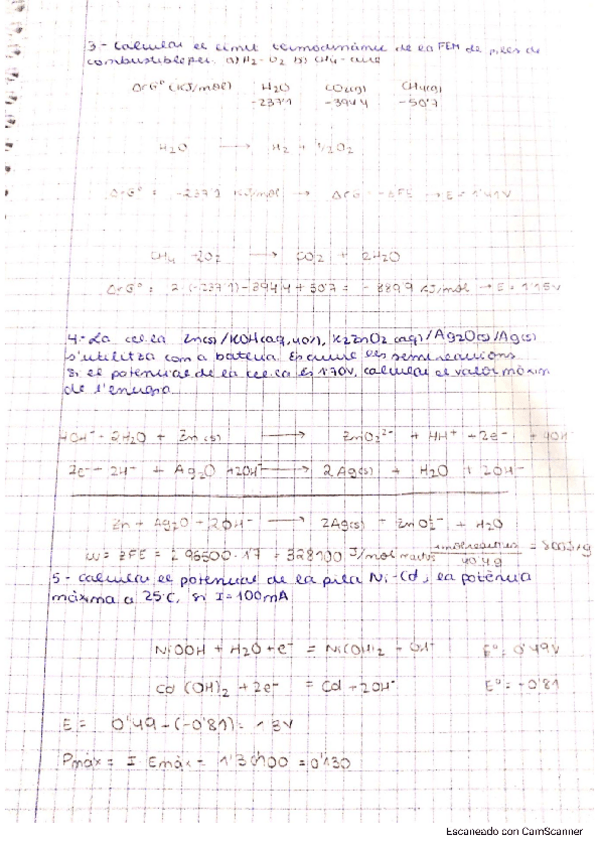 3.- Calcular el límit termodinàmic de la FEM de piles de
combustible per: a) H2-O2 b) CH4-aire
ΔfG° (KJ/mol) H2O CO2(g) CH4(g)
-237'1 -394'4 -50'7
H2O → H2 + 1/2O2
ΔrG° = -237'1 KJ/mol → ΔrG = -zFE → E = 1'41V
CH4 + 2O2 → CO2 + 2H2O
ΔrG° = 2·(-237'1) - 394'4 + 50'7 = -8899 KJ/mol → E = 1'15V
4.- La cel·la Zn(s)/KOH(aq, 40%), K2ZnO2(aq)/Ag2O(s)/Ag(s)
s'utilitza com a bateria. Escriure les semireaccions
Si el potencial de la cel·la és 1'70V, calcular el valor màxim
de l'energia
4OH- + 2H2O + Zn(s) → ZnO2²- + 4H+ + 2e- + 4OH-
2e- + 2H+ + Ag2O + 2OH- → 2Ag(s) + H2O + 2OH-
Zn + Ag2O + 2OH- → 2Ag(s) + ZnO2²- + H2O
w = zFE = 2·96500·1'7 = 328100 J/mol
5.- Calcular el potencial de la pila Ni-Cd, la potència
màxima a 25°C, si I=100mA
NiOOH + H2O + e- = Ni(OH)2 + OH- E° = 0'49V
Cd(OH)2 + 2e- = Cd + 2OH- E° = -0'81
E = 0'49 - (-0'81) = 1'3V
Pmàx = I · Emàx = 1'3·0'100 = 0'130
Escaneado con CamScanner